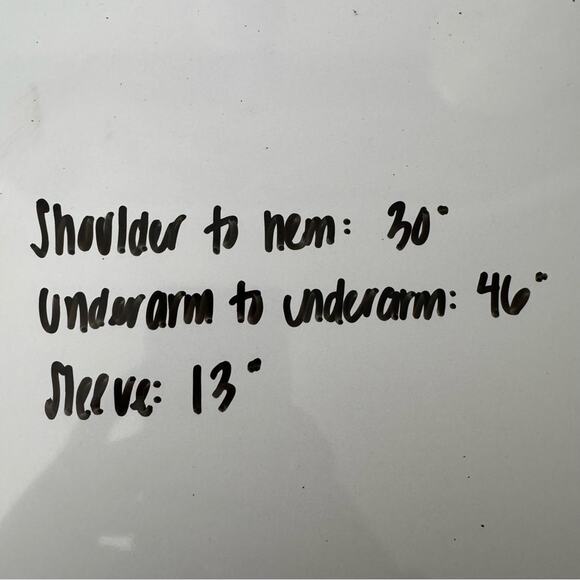 Shoulder to hem: 30"
Underarm to underarm: 46"
Sleeve: 13"